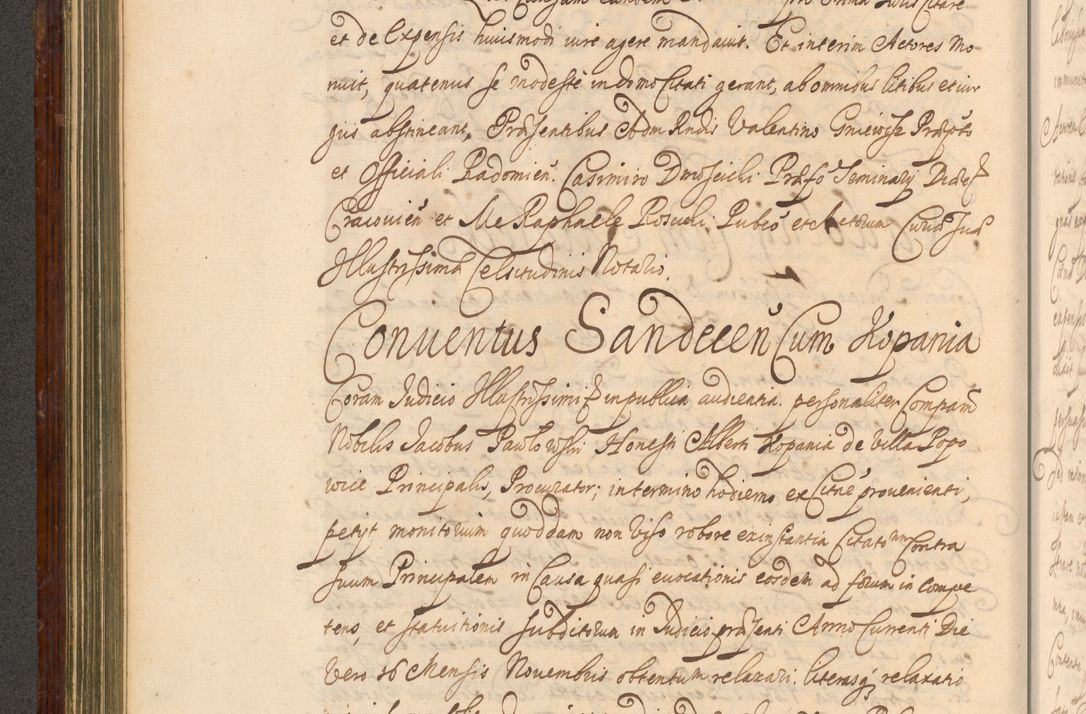 et de Expensis huiusmodi iure agere mandavit. Et interim Actores Mo
nuit, quatenus se modeste in domo Citati gerant, ab omnibus litibus et iur
gys abstineant, Præsentibus Adm Rndis Valentino Gniewosz Præpto
et Officiali Radomien. Casimiro Dwosicki Præfo Seminary Diæc
Cracovien et Me Raphaele Publco et Actorum Curiæ
Illustrissimæ Celsitudinis Notario.
Conventus Sandecen Cum Kopania
Coram Judicio Illustrissimi in publica audientia personaliter Comparen
Nobilis Jacobus Pawlowski Honesti Alberti Kopania de Villa Popo
wice Principalis, Procurator; in termino hodierno ex Citne provenienti,
petyt monitorium quoddam non viso robore ex instantia Citatorum Contra
suum Principalem in Causa quasi evocationis eosdem ad forum in compe
tens, et statuitionis subditorum in Judicio præsenti Anno Currenti Die
vero 16 Mensis Novembris obtentum relaxari. literasq relaxatio